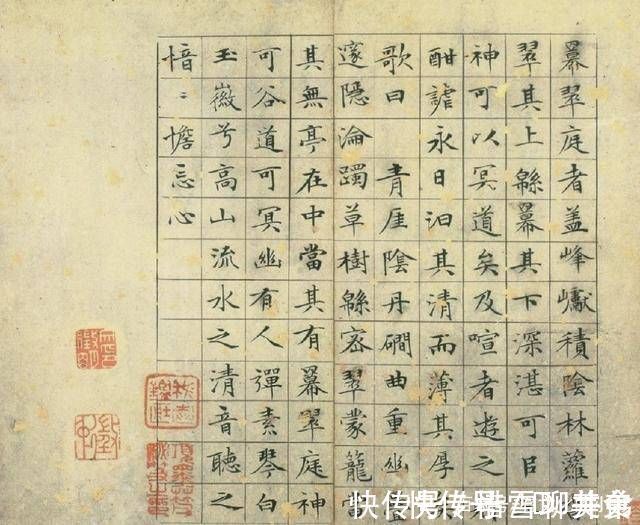 冪翠庭者蓋峰巘積陰林蘿
翠其上緜冪其下深湛可居
神可以冥道矣及喧者遊之
酣謔永日汩其清而薄其厚
歌曰 青厓陰丹磵曲重幽
邃隱淪躅草樹緜密翠蒙籠當
其無亭在中當其有冪翠庭神
可谷道可冥幽有人彈素琴白
玉徽兮高山流水之清音聽之
愔〻憺忘心
快传